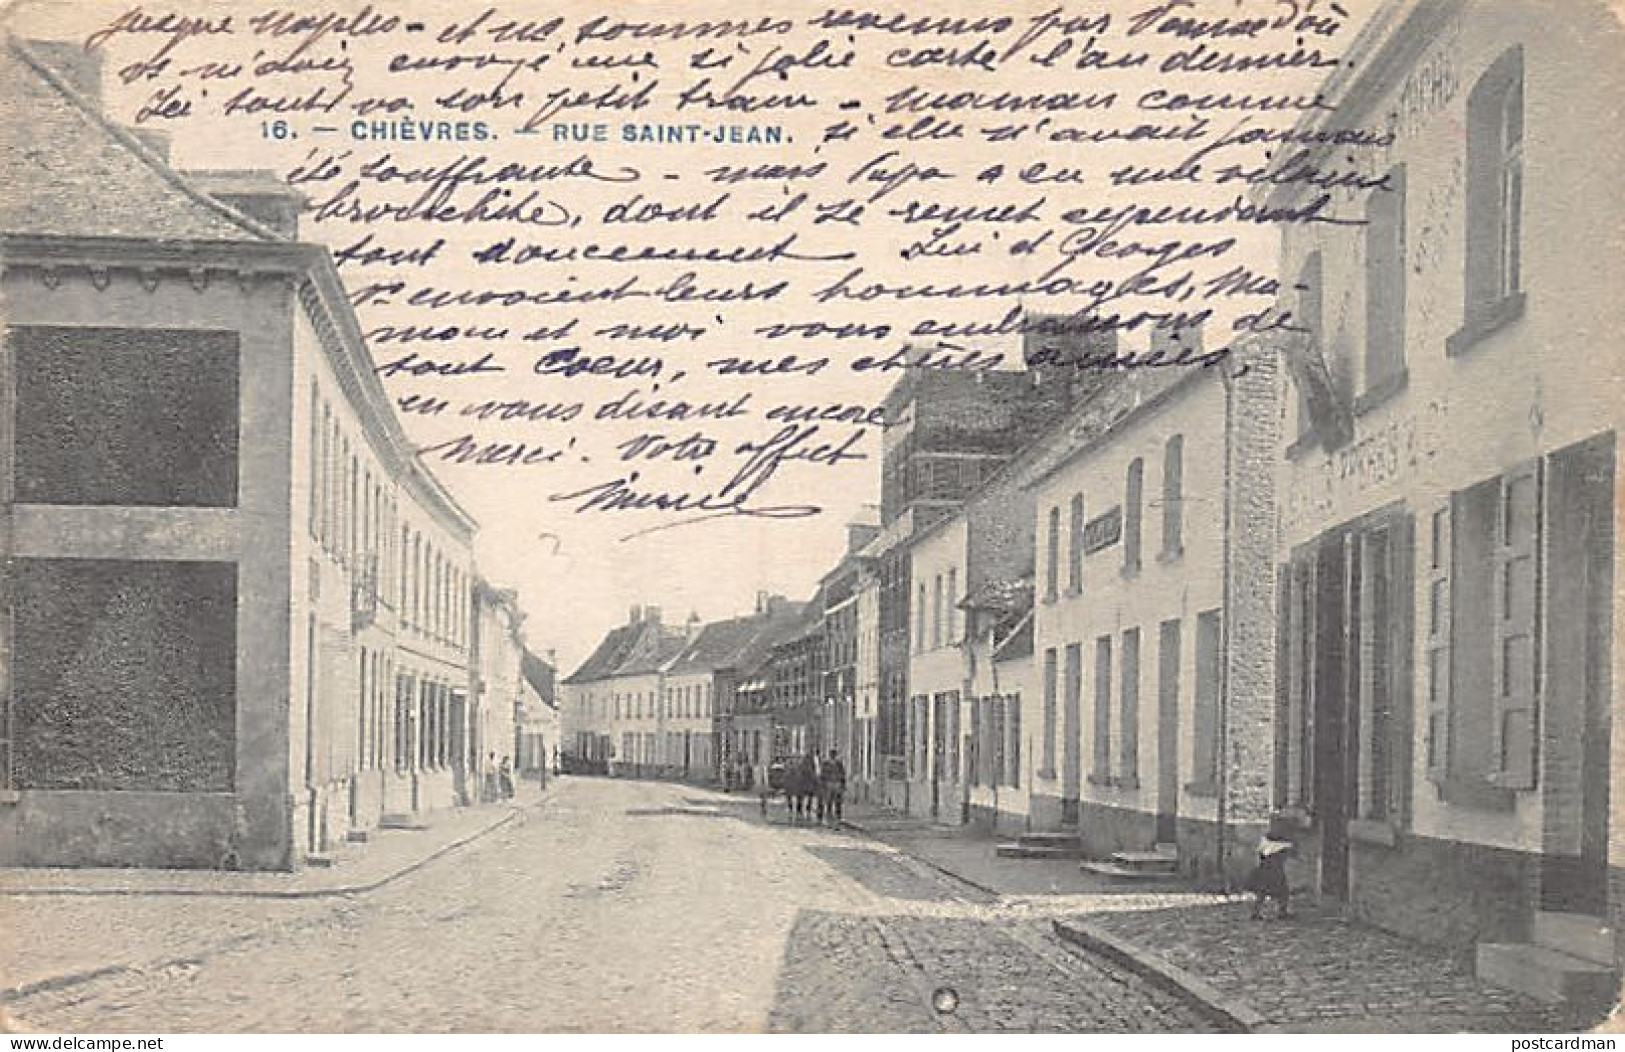 jusque Naples - et ns sommes revenus par Venise d'où
vs m'aviez envoyé une si jolie carte l'an dernier.
Ici tout va son petit train - Maman comme
16. — CHIÈVRES. — RUE SAINT-JEAN.
si elle n'avait jamais
été souffrante - mais Papa a eu une vilaine
bronchite, dont il se remet cependant
tout doucement. Lui et Georges
vs envoient leurs hommages, Ma-
man et moi vous embrassons de
tout coeur, mes chères amies,
en vous disant encore
merci. Votre affect
postcardman